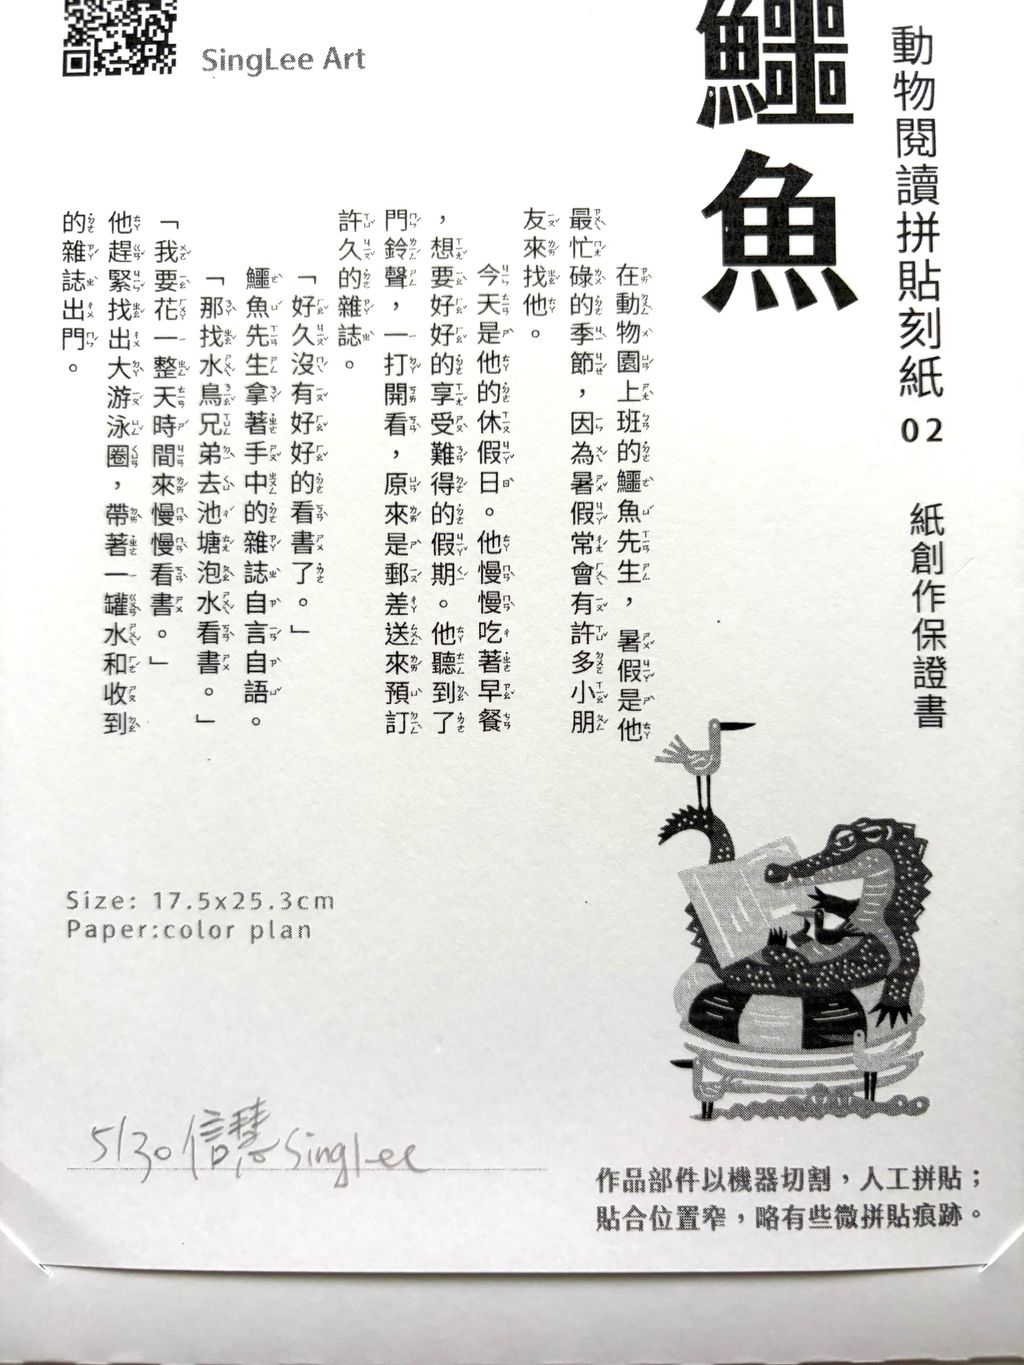 SingLee Art
鱷魚
動物閱讀拼貼刻紙02 紙創作保證書
在動物園上班的鱷魚先生，暑假是他
最忙碌的季節，因為暑假常會有許多小朋
友來找他。
今天是他的休假日。他慢慢吃著早餐
，想要好好的享受難得的假期。他聽到了
門鈴聲，一打開看，原來是郵差送來預訂
許久的雜誌。
「好久沒有好好的看書了。」
鱷魚先生拿著手中的雜誌自言自語。
「那找水鳥兄弟去池塘泡水看書。」
「我要花一整天時間來慢慢看書。」
他趕緊找出大游泳圈，帶著一罐水和收到
的雜誌出門。
Size: 17.5x25.3cm
Paper:color plan
5/30 信慧 SingLee
作品部件以機器切割，人工拼貼；
貼合位置窄，略有些微拼貼痕跡。